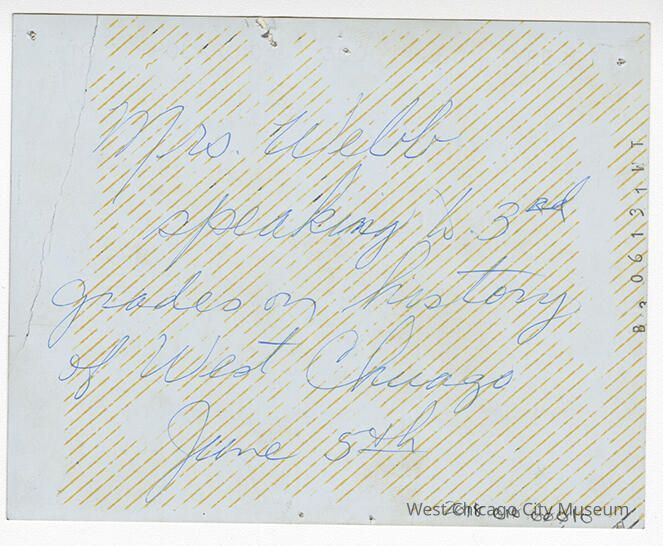 Mrs. Webb
speaking to 3rd
grades on history
of West Chicago
June 5th
B3 06131WT
West Chicago City Museum